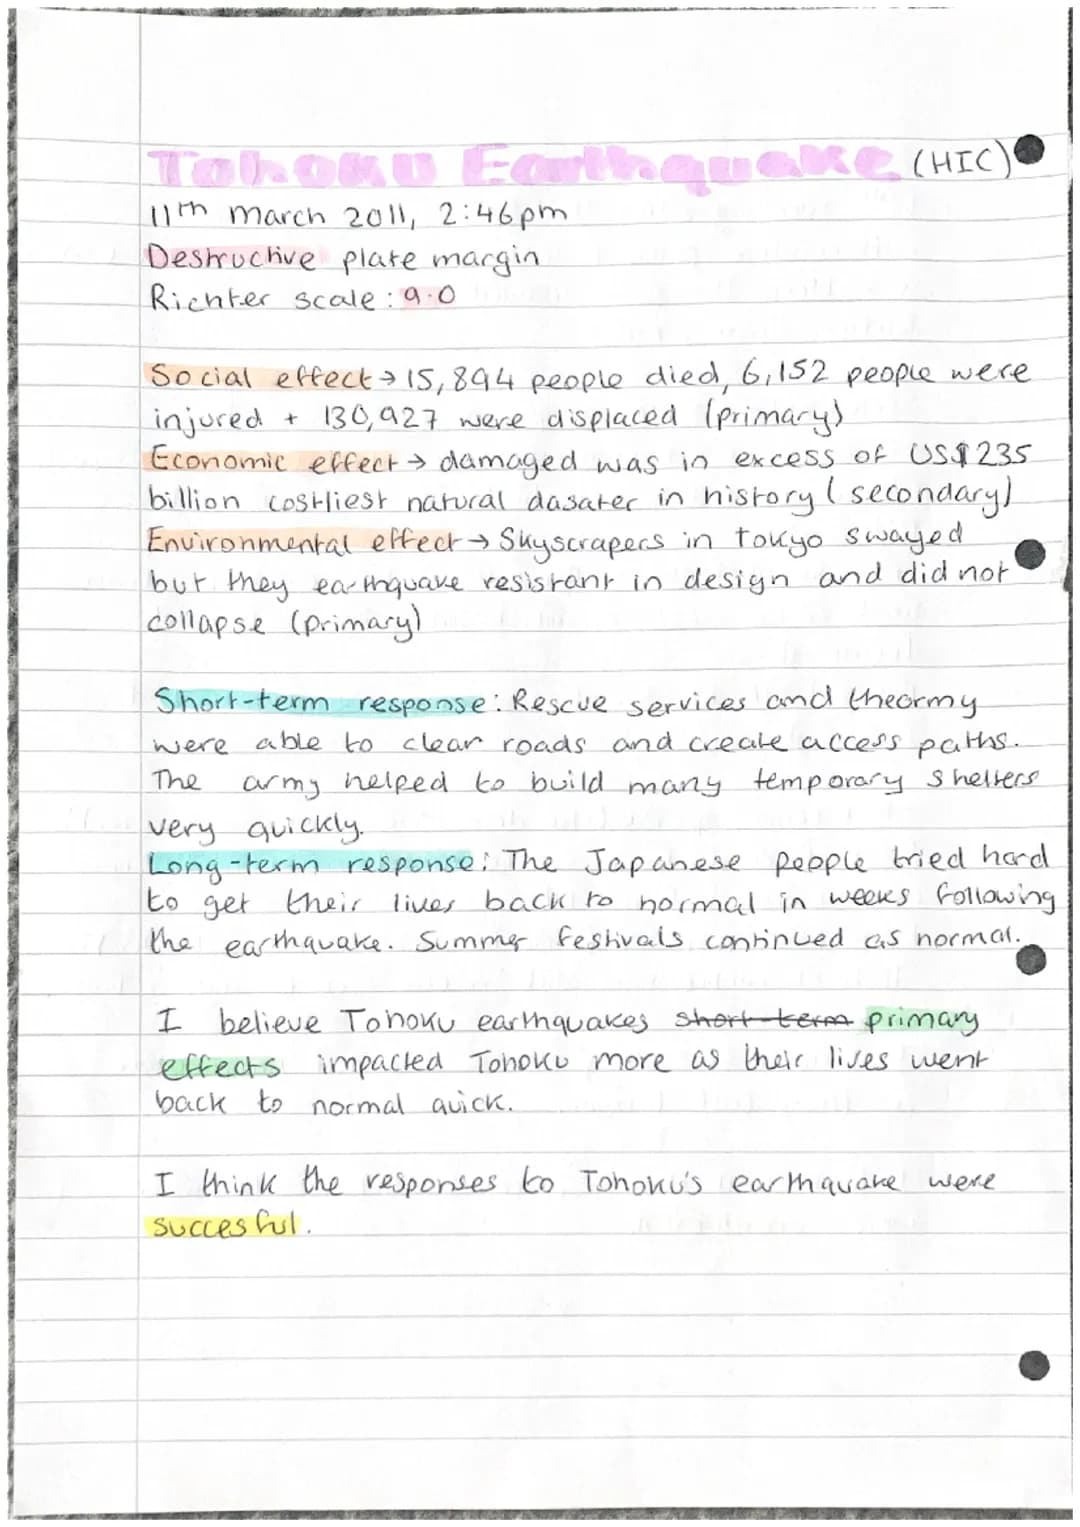 Tohoku Earthquake (HIC)
11th march 2011, 2:46pm
Destructive plate margin
Richter scale: 9.0
Social effect → 15,894 people died, 6,152 people were
injured + 130,927 were displaced (primary)
Economic effect → damaged was in excess of US$235
billion costliest natural dasater in history (secondary)
Environmental effect → Skyscrapers in tokyo swayed
but they earthquake resistant in design and did not
collapse (primary)
Short-term response: Rescue services and the army
were able to clear roads and create access paths.
The army helped to build many temporary shelters
very quickly.
Long-term response: The Japanese people tried hard
to get their lives back to normal in weeks following
the earthquake. Summer festivals continued as normal.
I believe Tohoku earthquakes short-term primary
effects impacted Tohoku more as their lives went
back to normal quick.
I think the responses to Tohoku's earthquake were
succesful.